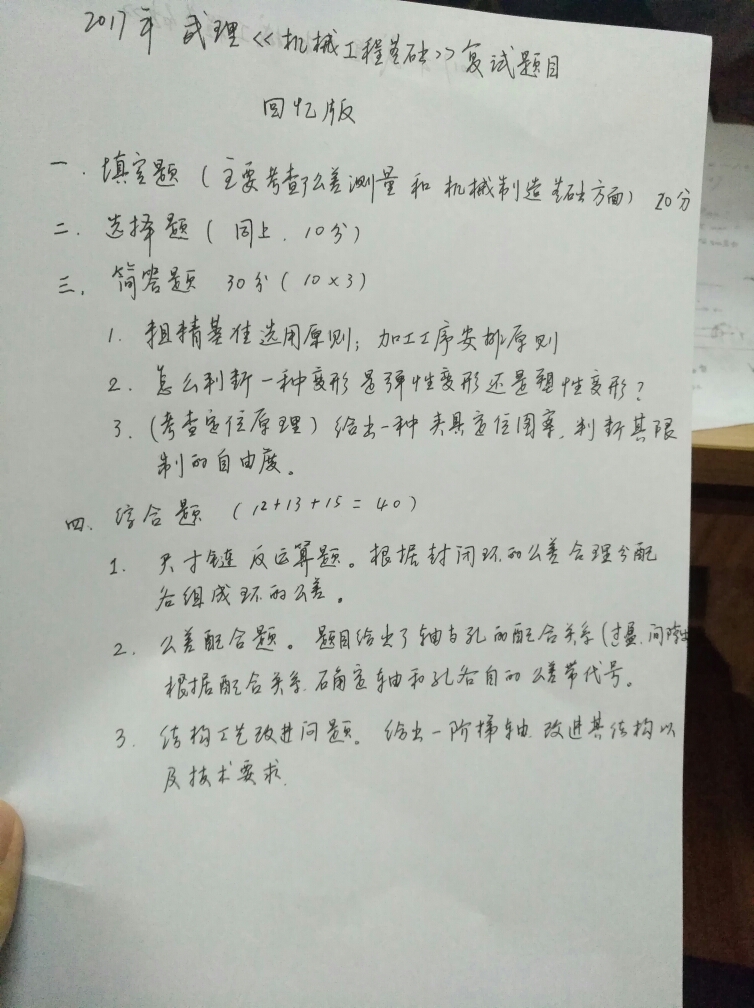 2017年 武理《机械工程基础》复试题目
回忆版
一. 填空题(主要考查了公差测量和机械制造基础方面) 20分
二. 选择题(同上. 10分)
三. 简答题 30分(10×3)
1. 粗精基准选用原则; 加工工序安排原则
2. 怎么判断一种变形是弹性变形还是塑性变形?
3. (考查定位原理) 给出一种夹具定位图案, 判断其限
制的自由度。
四. 综合题 (12+13+15=40)
1. 尺寸链反运算题。根据封闭环的公差合理分配
各组成环的公差。
2. 公差配合题。题目给出了轴与孔的配合关系(过盈.间隙
根据配合关系.确定轴和孔各自的公差带代号。
3. 结构工艺改进问题。给出一阶梯轴.改进其结构以
及技术要求.